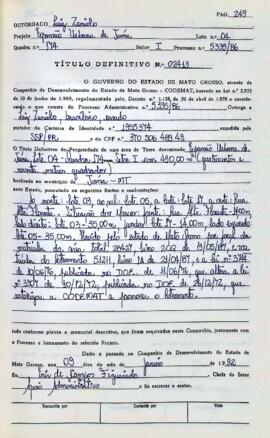 PAG. 249
OUTORGADO Luiz Zanilo
Projeto Expansão Urbana de Juína Lote nº 04
Quadra nº 174 Setor I Processo nº 5.335/86
TÍTULO DEFINITIVO Nº 02413
O GOVERNO DO ESTADO DE MATO GROSSO, através da
Companhia de Desenvolvimento do Estado de Mato Grosso - CODEMAT, baseado na Lei nº 2.933
de 10 de junho de 1969, regulamentado pelo Decreto nº 1.138 de 30 de abril de 1970 e considerando
o que consta do Processo Administrativo nº 5.335/86 outorga a
Luiz Zanilo, brasileiro, casado
portador da Carteira de Identidade nº 1955374 expedida pela
SSP/PR e do CPF nº 370 506 489 49
o Título Definitivo de Propriedade de uma área de Terra denominada Expansão Urbana de
Juína, Lote 04 - quadra 174 - Setor I com 490,00 m² (quatrocentos e
noventa metros quadrados)
localizada no município de Juína - MT
neste Estado, possuindo os seguintes limites e confrontações:
ao norte: lote 03, ao sul: lote 05, a leste: lote 17, a oeste: Rua
35,00m, fundos lote 17 - 14,00m, lado esquerdo
lote 05 - 35,00m.
matrícula da área total 28437, livro 2CG de 13/05/87, e ma
trícula do loteamento 53211 de 21/04/87, e a lei nº 3744
de 10/06/76, publicado no D.O.E. de 11/06/76, que altera a lei
nº 3307 de 40/12/72, publicado no D.O.E. de 26/12/72, que
autorizou a CODEMAT a promover o loteamento.
tudo conforme planta e memorial descritivo, que ficam arquivados nesta Companhia, juntamente com
o Processo e loteamento do referido Projeto.
Dado e passado na Companhia de Desenvolvimento do Estado de
Mato Grosso, aos 09 dias do mês de janeiro de 1992
Eu de Campos Figueiredo Chefe do Setor
Apoio Administrativo o fiz escrever e assino.
Transcrito por
Conferido por
Visto